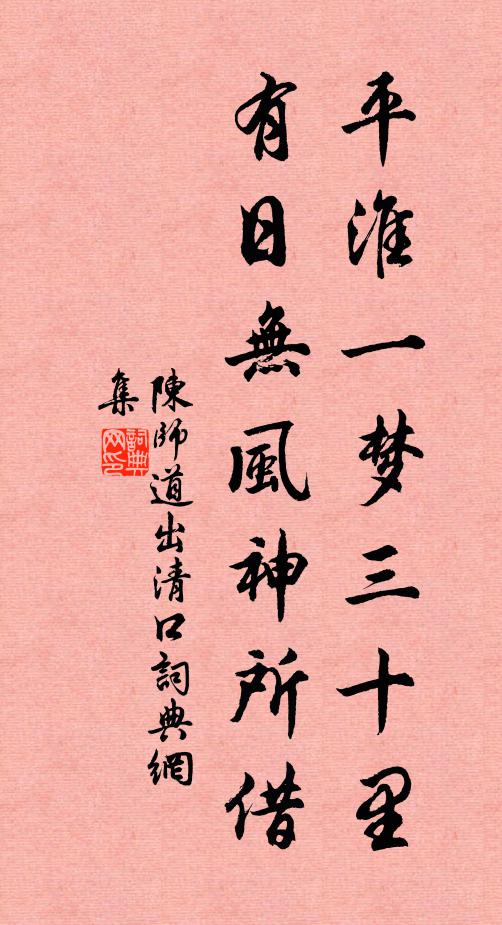 平淮一梦三十里
有日無風神所借
陳師道出清口詞典網
集
詞典网印